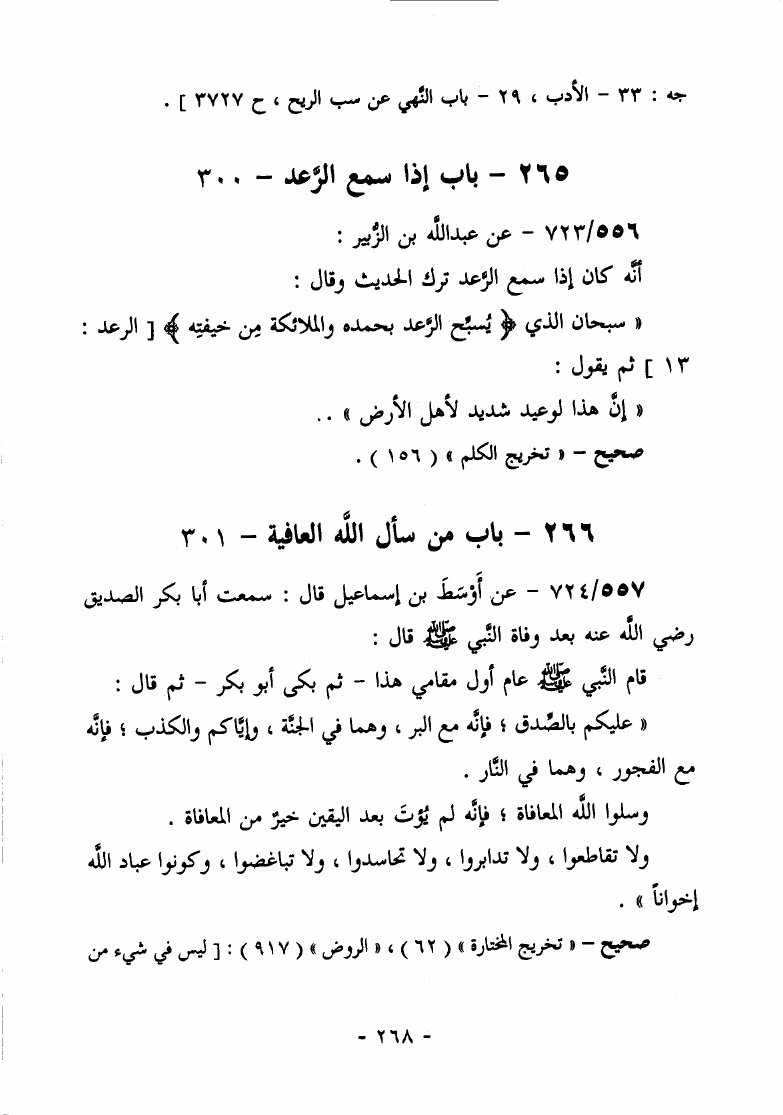 جه : ٣٣ - الأدب ، ٢٩ - باب النَّهي عن سب الريح ، ح ٣٧٢٧ ] .
٢٦٥ - باب إذا سمع الرَّعد - ٣٠٠
٧٢٣/٥٥٦ - عن عبدالله بن الزُّبير :
أنَّه كان إذا سمع الرَّعد ترك الحديث وقال :
« سبحان الذي ﴿ يُسبِّح الرَّعد بحمده والملائكة مِن خيفتِه ﴾ [ الرعد :
١٣ ] ثم يقول :
« إنَّ هذا لوعيد شديد لأهل الأرض » . .
صحيح - « تخريج الكلم » ( ١٥٦ ) .
٢٦٦ - باب من سأل الله العافية - ٣٠١
٧٢٤/٥٥٧ - عن أَوْسَطَ بن إسماعيل قال : سمعت أبا بكر الصديق
رضي الله عنه بعد وفاة النَّبي ﷺ قال :
قام النَّبي ﷺ عام أول مقامي هذا - ثم بكى أبو بكر - ثم قال :
« عليكم بالصِّدق ؛ فإنَّه مع البر ، وهما في الجنَّة ، وإيَّاكم والكذب ؛ فإنَّه
مع الفجور ، وهما في النَّار .
وسلوا الله المعافاة ؛ فإنَّه لم يُؤتَ بعد اليقين خيرٌ من المعافاة .
ولا تقاطعوا ، ولا تدابروا ، ولا تحاسدوا ، ولا تباغضوا ، وكونوا عباد الله
إخواناً » .
صحيح - « تخريج المختارة » ( ٦٢ ) ، « الروض » ( ٩١٧ ) : [ ليس في شيء من
- ٢٦٨ -